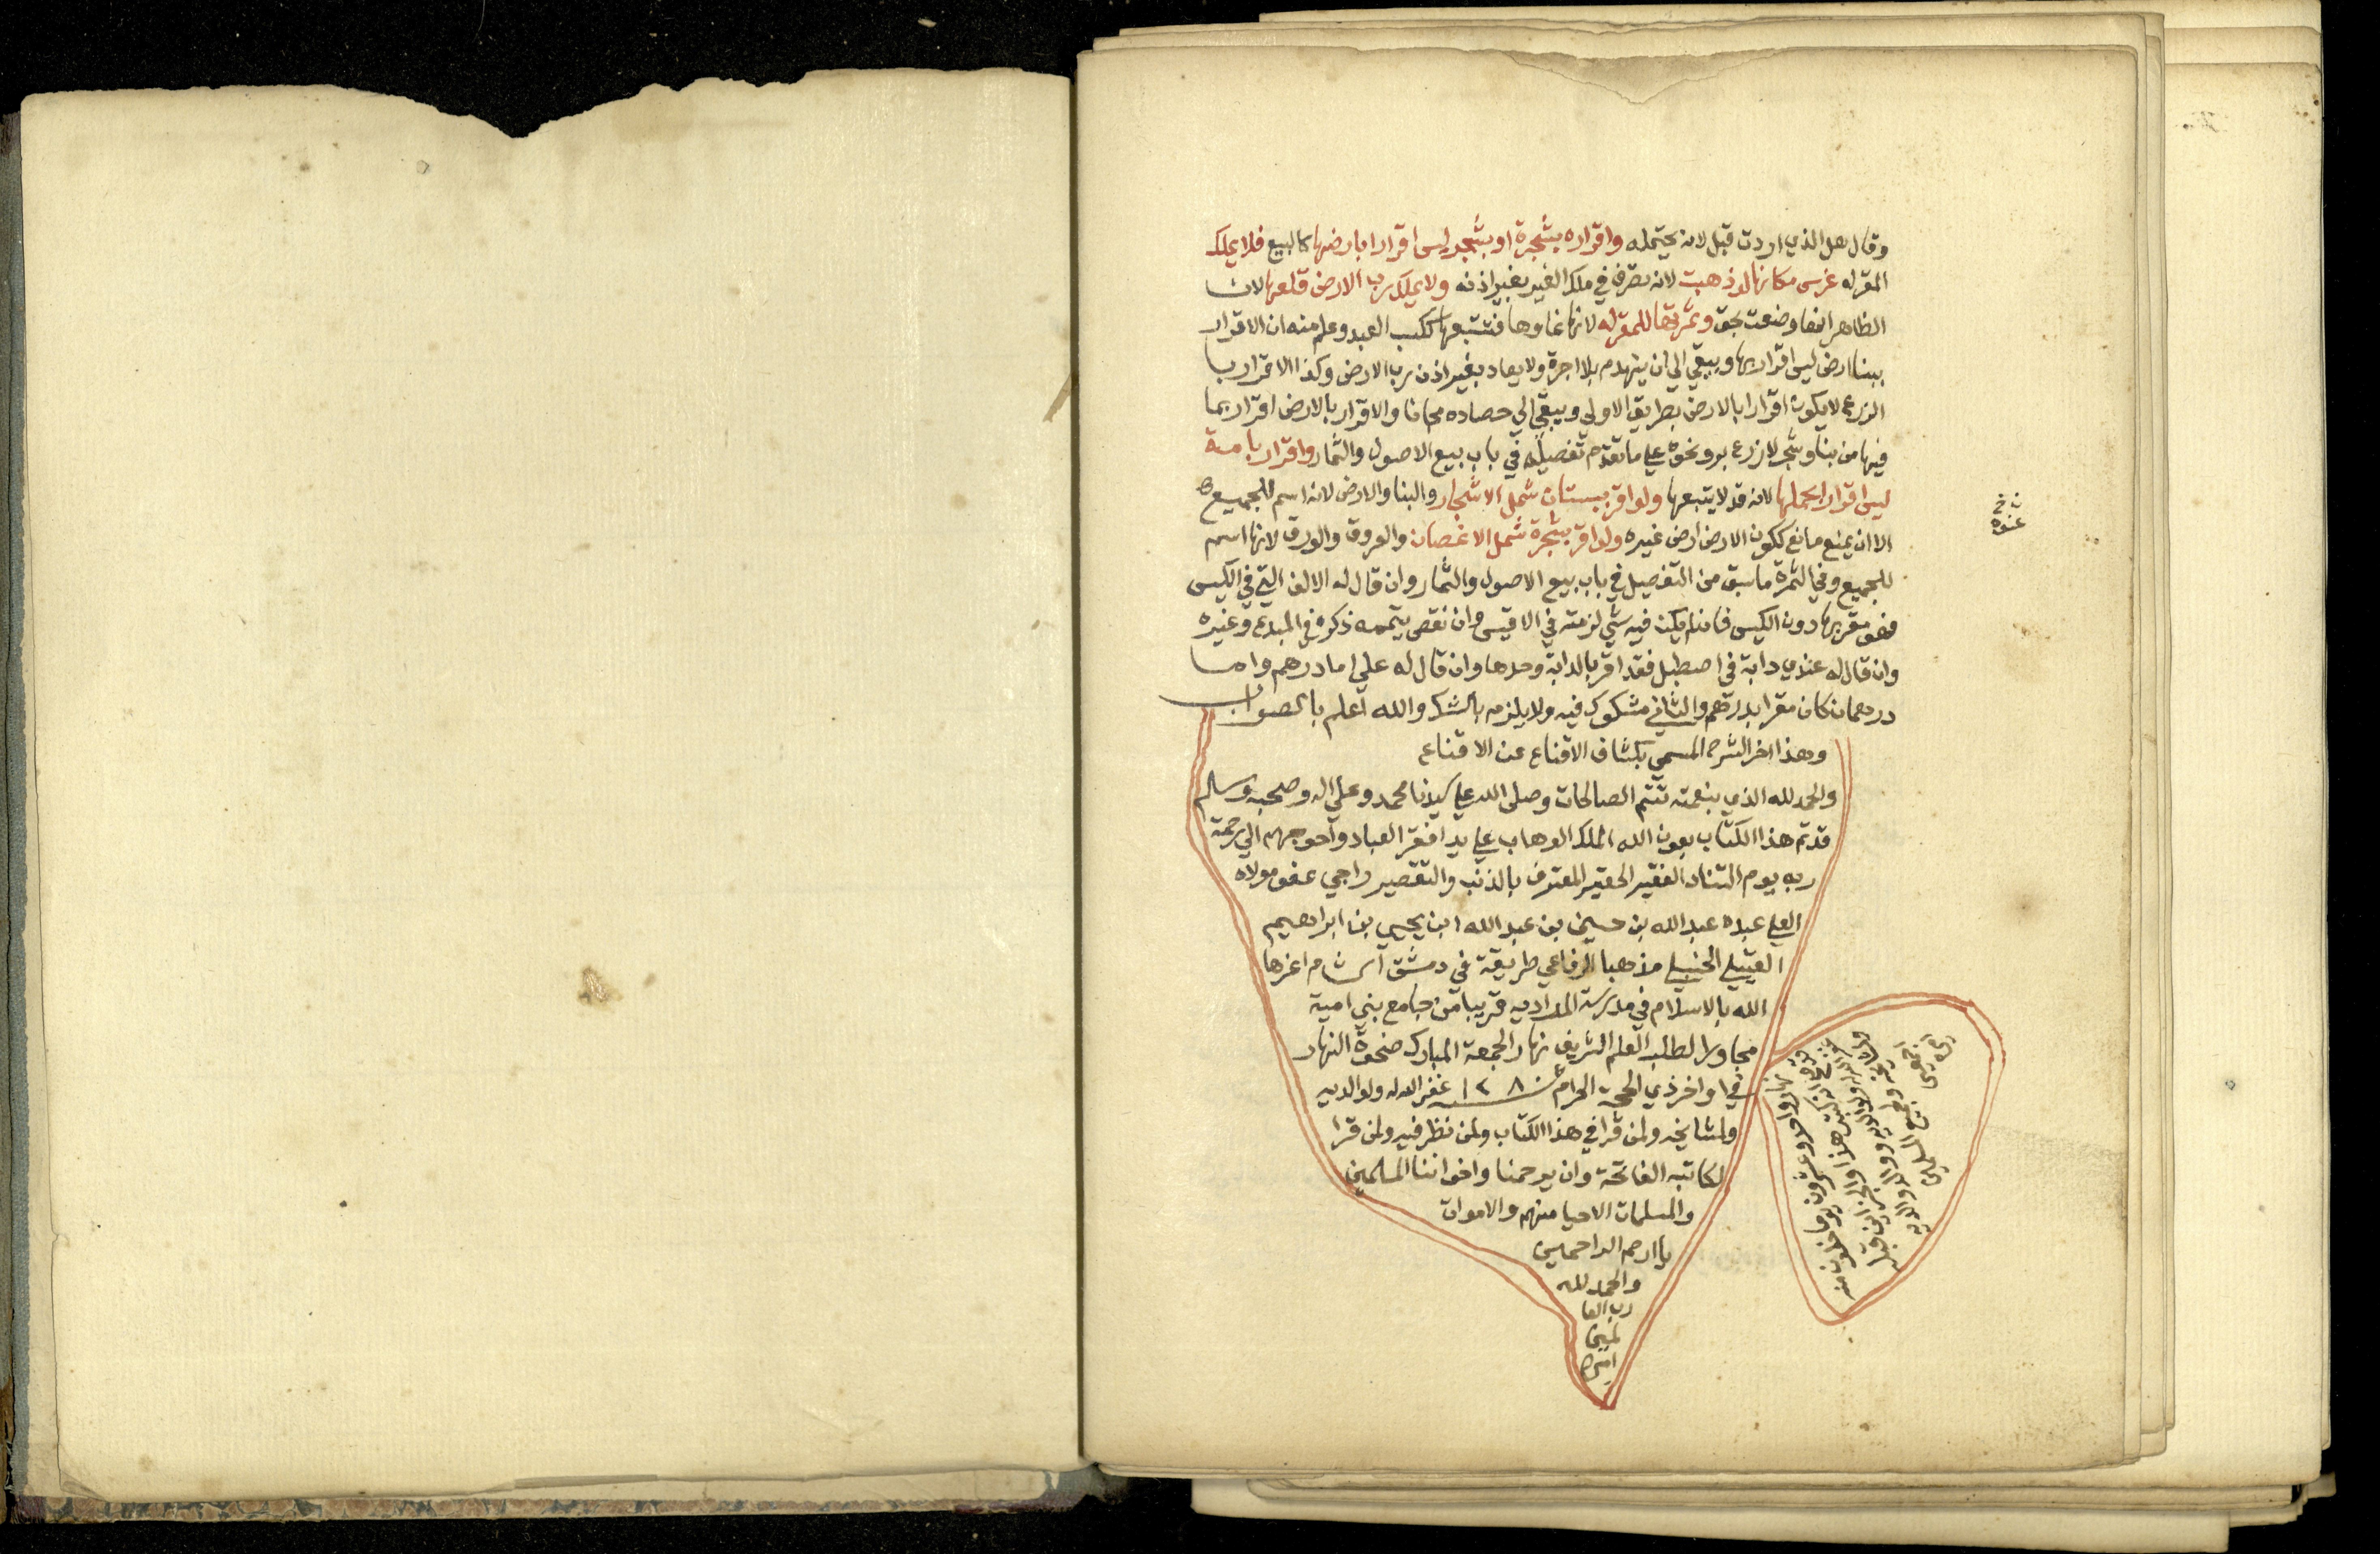 وقال هل الذي اردت قبل لانه يحتمله واقراره بشجرة او بشجر ليس اقرارا بارضها كالبيع فلا يملك
المقر له غرس مكانها لو ذهبت لانه تصرف في ملك الغير بغير اذنه ولا يملك رب الارض قلعها لان
الظاهر انها وضعت بحق وثمرتها للمقر له لانها نماوها فتتبعها ككسب العبد وعلم منه ان الاقرار
ببنا ارض ليس اقرار بها ويبقي الي ان ينهدم بلا اجرة ولا يعاد بغير اذن رب الارض وكذا الاقرار با
الزرع لا يكون اقرارا بالارض بطريق الاولي ويبقي الي حصاده مجانا والاقرار بالارض اقرار بما
فيها من بنا وشجر لا زرع بر ونحوه علي ما تقدم تفصيله في باب بيع الاصول والثمار واقرار بامة
ليس اقرارا بحملها لانه قد لا يتبعها ولو اقر ببستان شمل الاشجار والبنا والارض لانه اسم للجميع
الا ان يمنع مانع ككون الارض ارض غيره ولو اقر بشجرة شمل الاغصان والعروق والورق لانها اسم
للجميع وفي الثمرة ما سبق من التفصيل في باب بيع الاصول والثمار وان قال له الالف التي في الكيس
فهو مقر بها دون الكيس فان لم يكن فيه شي لزمته في الاقيس وان نقص يتممه ذكره في المبدع وغيره
وان قال له عندي دابة في اصطبل فقد اقر بالدابة وحدها وان قال له علي اما درهم واما
درهمان كان مقرا بدرهم والثاني مشكوك فيه ولا يلزمه بالشك والله اعلم بالصواب
وهذا اخر الشرح المسمي بكشاف الاقناع عن الاقناع
والحمد لله الذي بنعمته تتم الصالحات وصلى الله علي سيدنا محمد وعلي اله وصحبه وسلم
قد تم هذا الكتاب بعون الله الملك الوهاب علي يد افقر العباد واحوجهم الي رحمة
ربه يوم التناد الفقير الحقير المعترف بالذنب والتقصير راجي عفو مولاه
العلي عبده عبد الله بن حسين بن عبد الله ابن يحيي بن ابراهيم
الحنبلي مذهبا الرفاعي طريقة في دمشق الشام اعزها
الله بالاسلام في مدرسة المرادية قريبا من جامع بني امية
مجاورا لطلب العلم الشريف نهار الجمعة المبارك ضحوة النهار
في اواخر ذي الحجة الحرام سنة ١٢٨ غفر الله له ولوالديه
ولمشايخه ولمن قرا في هذا الكتاب ولمن نظر فيه ولمن قرا
لكاتبه الفاتحة وان يرحمنا واخواننا المسلمين
والمسلمات الاحيا منهم والاموات
يا ارحم الراحمين
والحمد لله
رب العا
لمين
امين
نهار واحد وعشرون يوما خلون منه
هذا والجز الذي قبله
ولوالديه ووالد والديه
ولجميع المسلمين
اجمعين